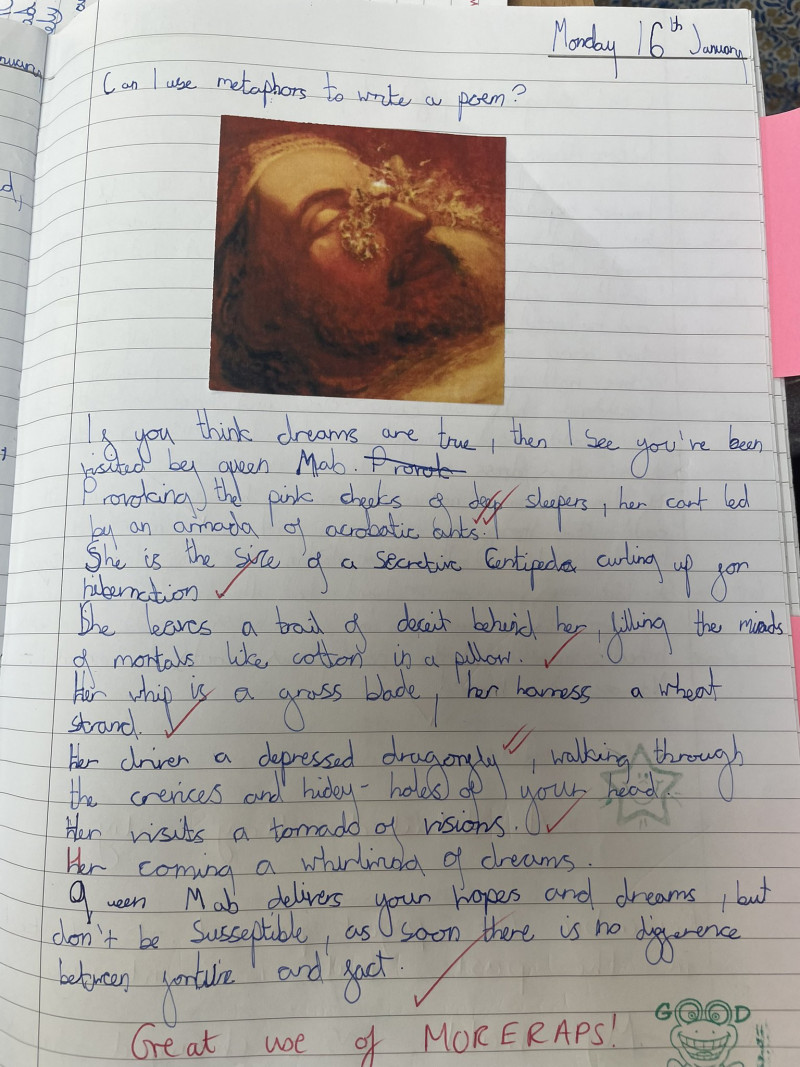 Monday 16th January
Can I use metaphors to write a poem?
If you think dreams are true, then I see you've been
visited by queen Mab. Provok
Provoking the pink cheeks of deep sleepers, her cart led
by an armada of acrobatic ants.
She is the size of a secretive Centipede curling up for
hibernation
She leaves a trail of deceit behind her, filling the minds
of mortals like cotton in a pillow.
Her whip is a grass blade, her harness a wheat
strand.
Her driver a depressed dragonfly, walking through
the crevices and hidey-holes of your head.
Her visits a tornado of visions.
Her coming a whirlwind of dreams.
Queen Mab delivers your hopes and dreams, but
don't be Susseptible, as soon there is no difference
between and fact.
Great use of MORERAPS!
GOOD